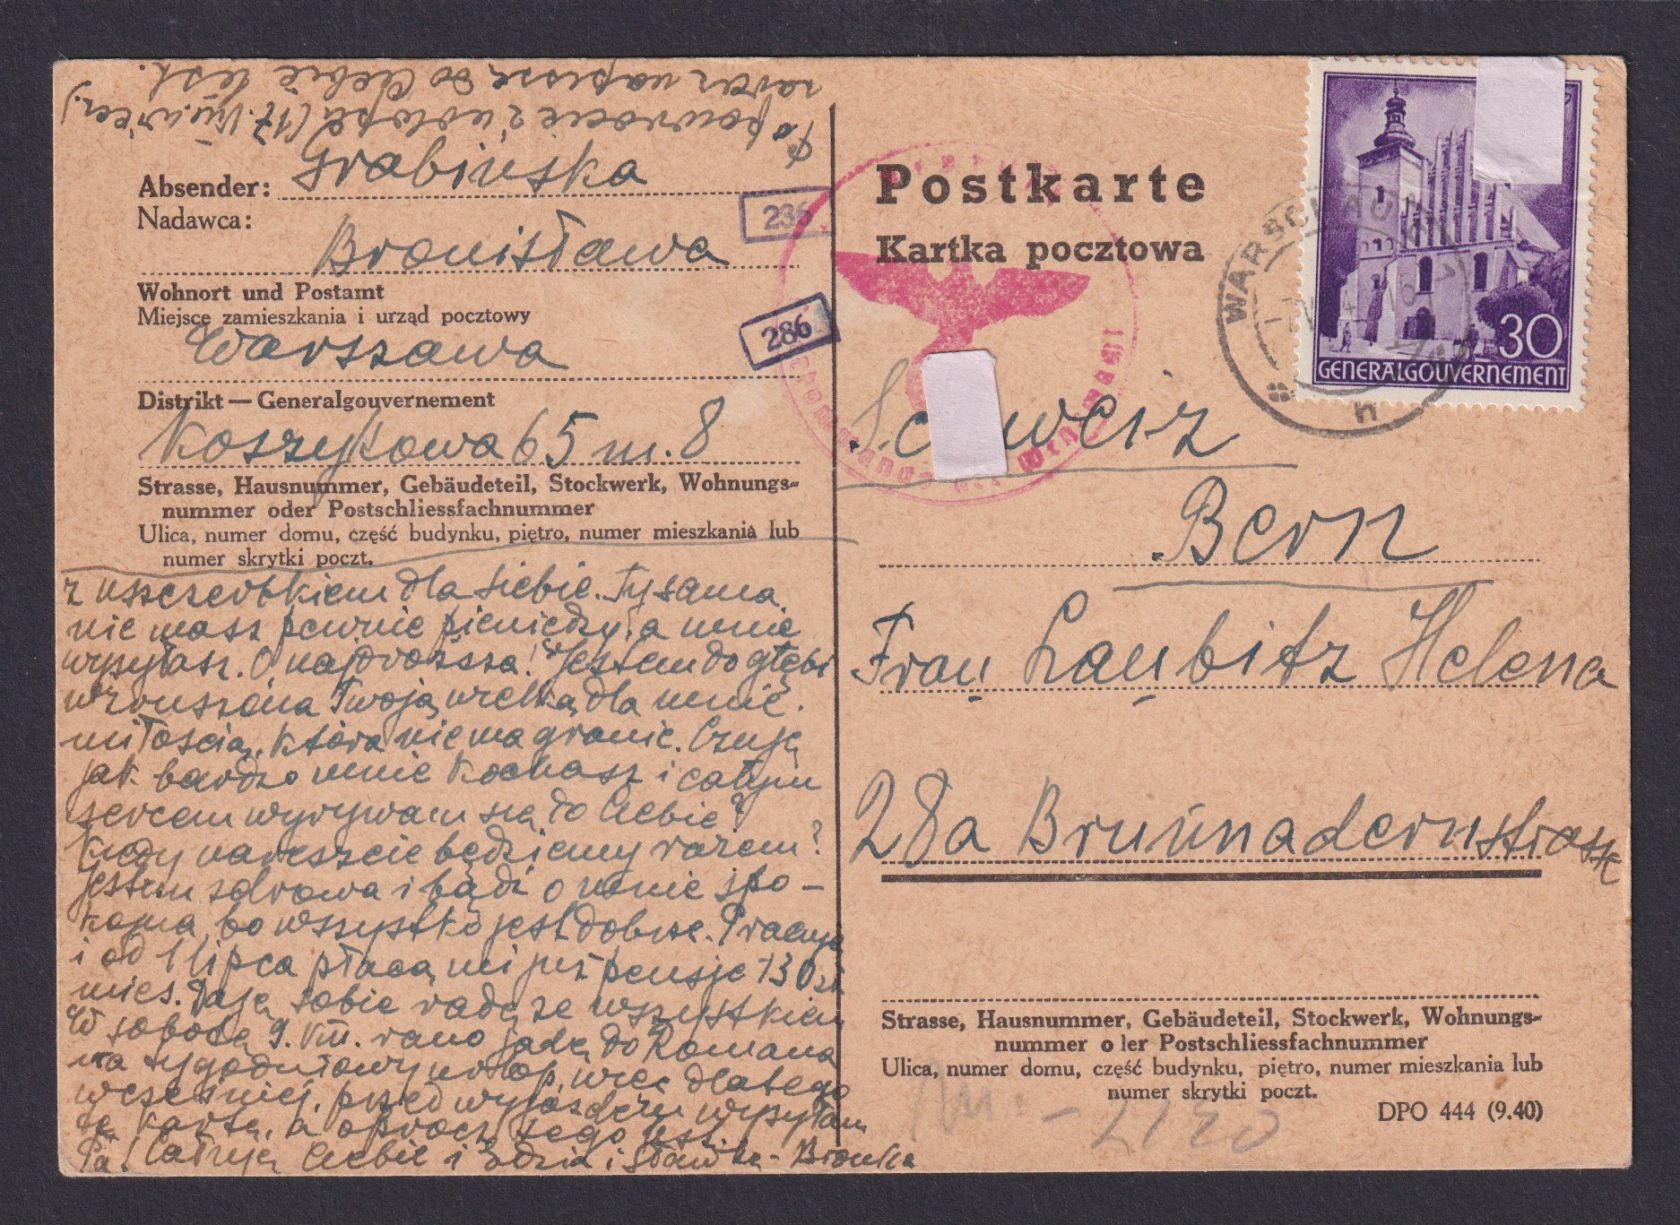 Po powrocie z urlopu (17. VIII. wiecz.)
zaraz napiszę do Ciebie list.
Absender: Grabińska
Nadawca:
Bronisława
Wohnort und Postamt
Miejsce zamieszkania i urząd pocztowy
Warszawa
Distrikt — Generalgouvernement
Koszykowa 65 m. 8
Strasse, Hausnummer, Gebäudeteil, Stockwerk, Wohnungs-
nummer oder Postschliessfachnummer
Ulica, numer domu, część budynku, piętro, numer mieszkania lub
numer skrytki poczt.
z uszczerbkiem dla siebie. Ty sama
nie masz pewnie pieniędzy, a mnie
wysyłasz. O najdroższa! Jestem do głębi
wzruszona Twoją wielką dla mnie
miłością, która nie ma granic. Czuję
jak bardzo mnie kochasz i całym
sercem wyrywam się do Ciebie!
Kiedy nareszcie będziemy razem?
Jestem zdrowa i bądź o mnie spo-
kojna, bo wszystko jest dobrze. Pracuję
i od 1 lipca płacą mi już pensję 130 zł
mies. Daję sobie radę ze wszystkiem
W sobotę 9. VIII. rano jadę do Romana
na tygodniowy urlop, więc dlatego
wcześniej, przed wyjazdem wysyłam
tę kartę, a oprócz tego list
Pa! Całuję Ciebie i Edzia i Sławkę - Bronka
236
286
Postkarte
Kartka pocztowa
WARSCHAU
h
30
GENERALGOUVERNEMENT
Schweiz
Bern
Frau Laubitz Helena
28a Brunnadernstrasse
Strasse, Hausnummer, Gebäudeteil, Stockwerk, Wohnungs-
nummer o ler Postschliessfachnummer
Ulica, numer domu, część budynku, piętro, numer mieszkania lub
numer skrytki poczt.
DPO 444 (9.40)